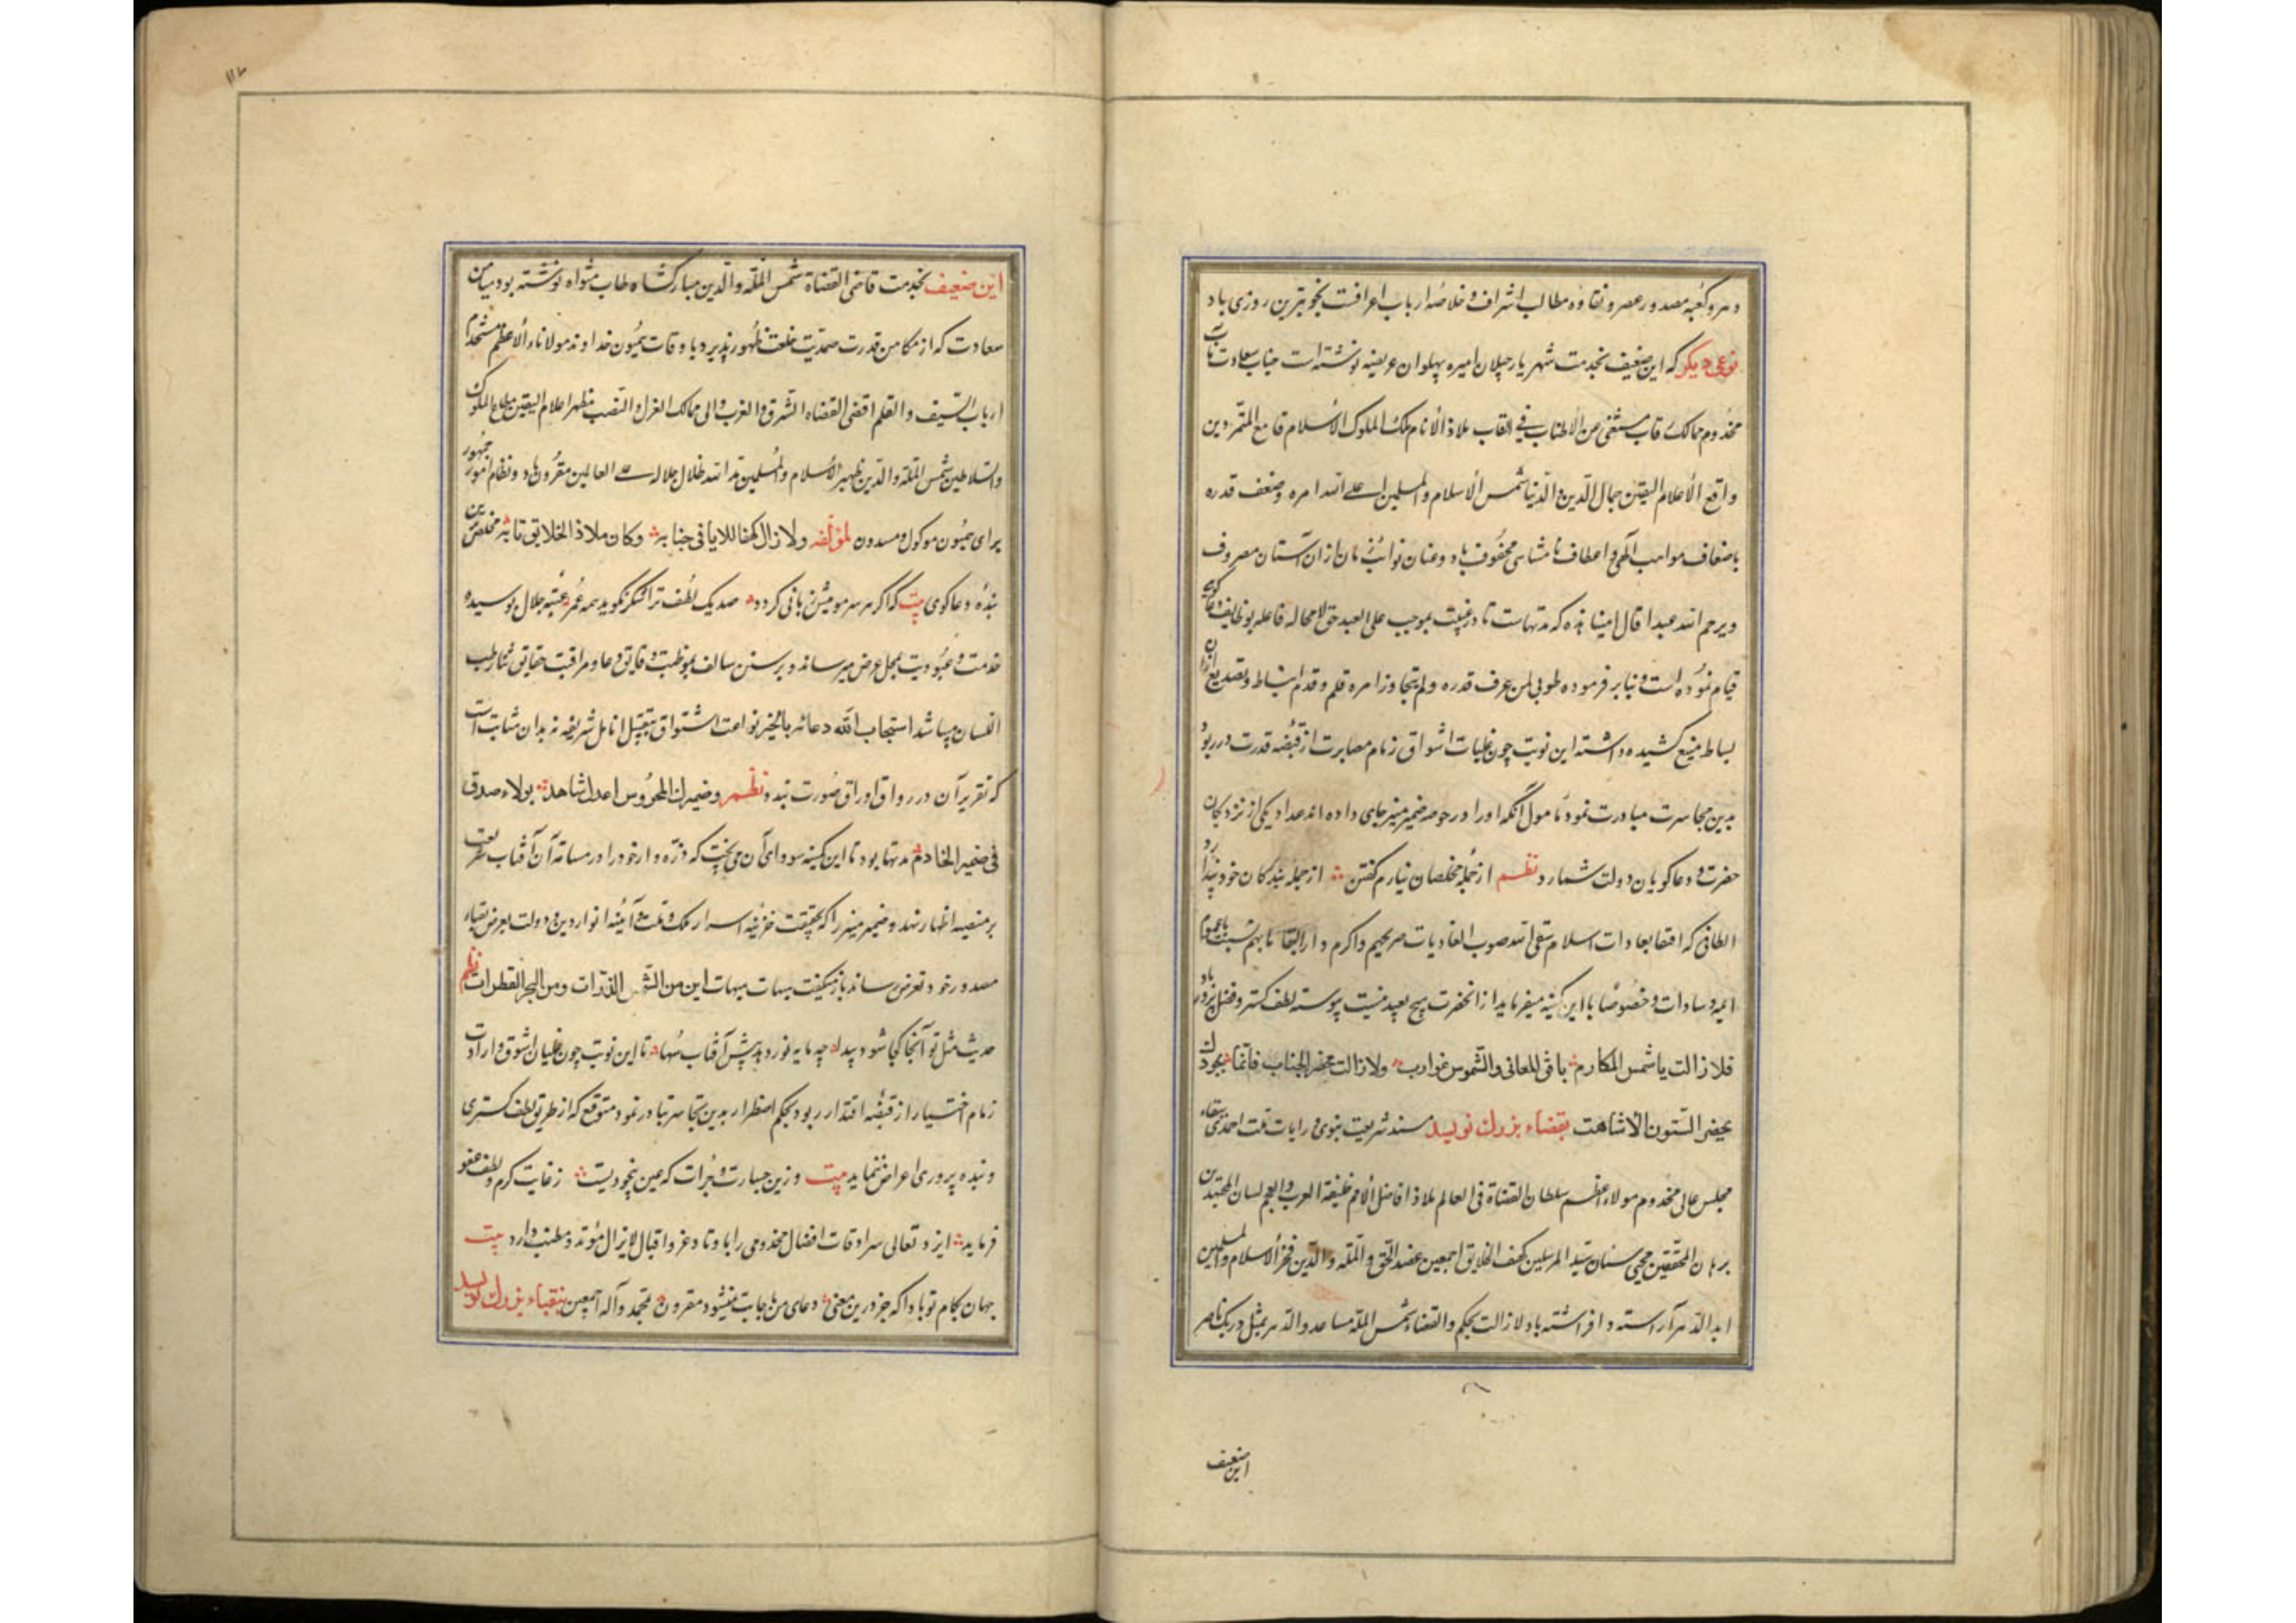 دهر و کعبه صدور عصر و نقاوه مطالب اشراف و خلاصه ارباب اعراف بخوبترین روزی باد
نوعی دیکر که این ضعیف بخدمت شهریار جیلان امیره پهلوان عریضه نوشته است جناب سعادت مآب
مخدوم ممالک رقاب مستغنی عن الاطناب فی القاب ملاذ الأنام ملک الملوک الأسلام قامع المتمردین
واقع الأعلام الیقین جمال الدین و الدنیا شمس الأسلام والمسلمین اعلی الله امره وضعف قدره
باضعاف مواهب الهی و اعطاف نامتناهی محفوف باد و عنان نوائب زمان ازان آستان مصروف
ویرحم الله عبدا قال امینا بنده که مدتهاست تا در غیبت بموجب علی العبد حق لامحاله فاعله بوظایف دعاکوئی
قیام نموده است و بنابر فرموده طوبی لمن عرف قدره ولم یتجاوز امره قلم و قدم انبساط و تصدیع ازان
بساط منیع کشیده داشته این نوبت چون غلبات اشواق زمام مصابرت از قبضه قدرت در ربود
بدین مجاسرت مبادرت نمود مامول آنکه او را در حوصه ضمیر منیر جای داده اند عداد یکی از نزدیکان
حضرت و دعاکویان دولت شمارد نظم از جمله مخلصان نیارم کفتن از جمله بندکان خود پندارد
الطافی که اقتفا بعادات اسلام سقی الله صوب الغادیات ضریحهم واکرم دار البقا مابهم نسبت با عموم
ایمه و سادات و خصوصا با این کمینه میفرماید از انحضرت هیچ بعید نیست پیوسته لطف کستر و فضل پرور باد
فلازالت یا شمس المکارم باقی المعانی والشموس غوارب ولازالت مخضر الجناب فانما بجودک
یخضر السنون الأشاهب بقضاء بزرك نویسد مسند شریعت نبوی و رایات ملت احمدی ببقاء
مجلس عالی مخدوم مولاء اعظم سلطان القضاة فی العالم ملاذ افاضل الأمم خلیفة العرب والعجم لسان المجتهدین
برهان المحققین محیی سنان سید المرسلین کهف الخلایق اجمعین عضد الحق والملة والدین فخر الأسلام والمسلمین
ابد الدهر آراسته و افراشته باد لازالت بحکم والقضاء شمس الملة مساعد والدهر یمثل دریک ناصر
این ضعیف
این ضعیف بخدمت قاضی القضاة شمس الملة والدین مبارکشاه طاب مثواه نوشته بود میامن
سعادت که از مکامن قدرت صمدیت خلعت ظهور پذیرد با وقات همیون خداوند مولاناء الأعظم مستخدم
ارباب السیف والقلم اقضی القضاه الشرق والغرب والی ممالک العزل والنصب مظهر اعلام الیقین ملاع الملوک
والسلاطین شمس الملة والدین ظهیر الأسلام والمسلمین مد الله ظلال جلاله علی العالمین مقرون باد و نظام امور جمهور
برای همیون موکول و مسدون لمؤلفه ولازال کهفا للبرایا فی جنابه وکان ملاذ الخلایق تابه مخلص‌ترین
بنده دعاکوی بیت که اکر هر سر مویش زبانی کردد صد یک لطف ترا شکر نکوید همه عمر عتبه جلال بوسیده
خدمت و عبودیت بمحل عرض میرساند و بر سنن سالف بموظبت دقایق دعا و مراقبت حقایق ثنا رطب
اللسان میباشد استجاب الله دعائه بالخیر نواعت اشتواق بتقبیل انامل شریفه نه بدان مثابت است
که تقریر آن در رواق اوراق صورت بندد نظم وضمیرك المحروس اعدل شاهد بولاء صدق
فی ضمیر الخادم مدتها بود تا این کمینه سودای آن می‌پخت که ذره وار خود را در مسامته آن آفتاب شریعت
بر منصه اظهار نهد و ضمیر منیر را که بحقیقت خزینه اسرار ملک و ملت و آئینه انوار دین و دولت بعرض نقبای
مصدور خود تعرض رساند باز میکفت هیهات هیهات این من الشمس الذرات ومن البحر القطرات نظم
حدیث مثل تو آنجا کجا شود پیدا چه مایه نور دهد پیش آفتاب سها تا این نوبت چون غلیان شوق و ارادت
زمام اختیار از قبضه اقتدار ربود بحکم اضطرار بدین تجاسر تبادر نمود متوقع که از طریق لطف کستری
و بنده پروری اعراض ننماید بیت وزین جسارت و جرات که عین بیخودیست ز غایت کرم و لطف عفو
فرماید ایزد تعالی سرادقات افضال مخدومی را باوتاد عز و اقبال لایزال مؤبد و مطنب دارد بیت
جهان بکام تو بادا که جز درین معنی دعای من باجابت نمیشود مقرون بمحمد وآله اجمعین بنقباء بزرك نویسد